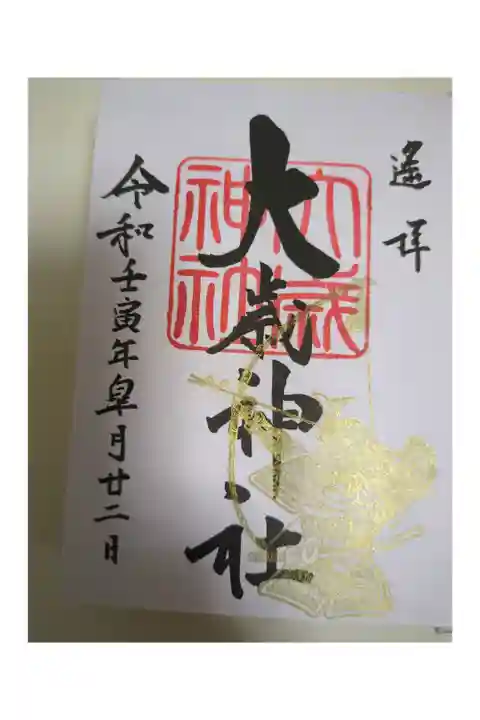 遙拝
大歳神社
大歳
神社
令和壬寅年皐月廿二日